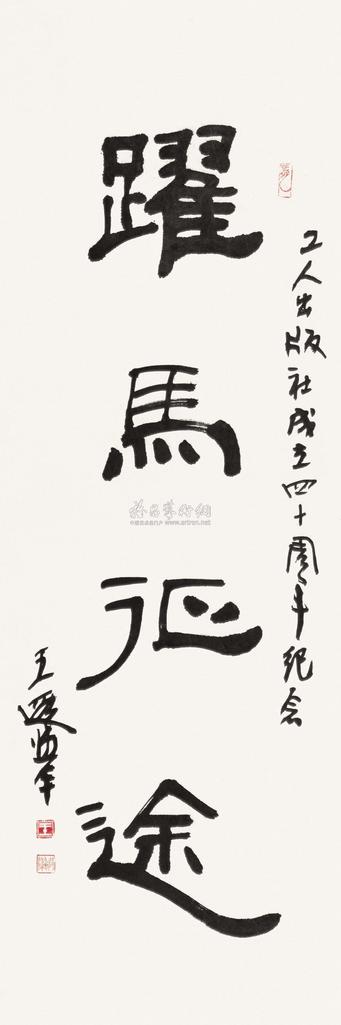 工人出版社成立四十周年纪念
躍馬征途
王遐举
雅昌藝術網
www.artron.net